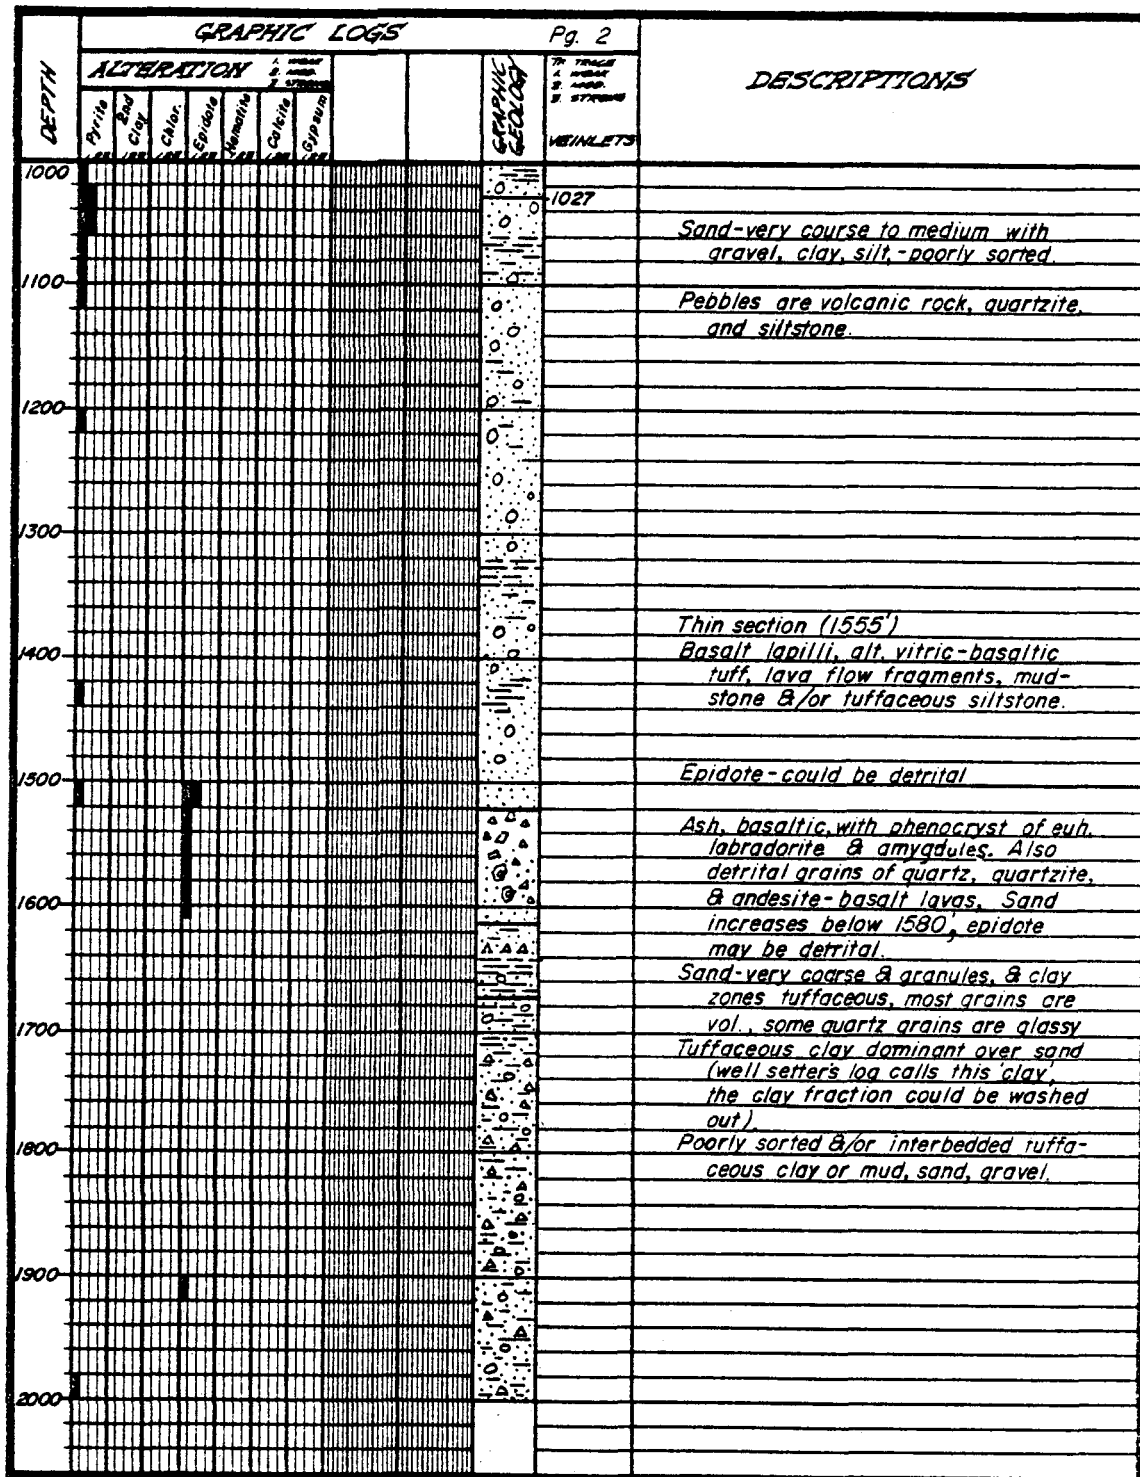 GRAPHIC LOGS
Pg. 2
DEPTH
ALTERATION
1. WEAK
2. MOD.
3. STRONG
GRAPHIC
GEOLOGY
TR TRACE
1. WEAK
2. MOD.
3. STRONG
VEINLETS
DESCRIPTIONS
Pyrite
2nd
Clay
Chlor.
Epidote
Hematite
Calcite
Gypsum
1000
1027
Sand-very course to medium with
gravel, clay, silt,-poorly sorted.
1100
Pebbles are volcanic rock, quartzite,
and siltstone.
1200
1300
Thin section (1555')
1400
Basalt lapilli, alt. vitric-basaltic
tuff, lava flow fragments, mud-
stone &/or tuffaceous siltstone.
1500
Epidote-could be detrital
Ash, basaltic, with phenocryst of euh.
labradorite & amygdules. Also
detrital grains of quartz, quartzite,
1600
& andesite-basalt lavas. Sand
increases below 1580', epidote
may be detrital.
Sand-very coarse & granules, & clay
zones tuffaceous, most grains are
1700
vol., some quartz grains are glassy
Tuffaceous clay dominant over sand
(well setter's log calls this 'clay',
the clay fraction could be washed
out).
1800
Poorly sorted &/or interbedded tuffa-
ceous clay or mud, sand, gravel.
1900
2000